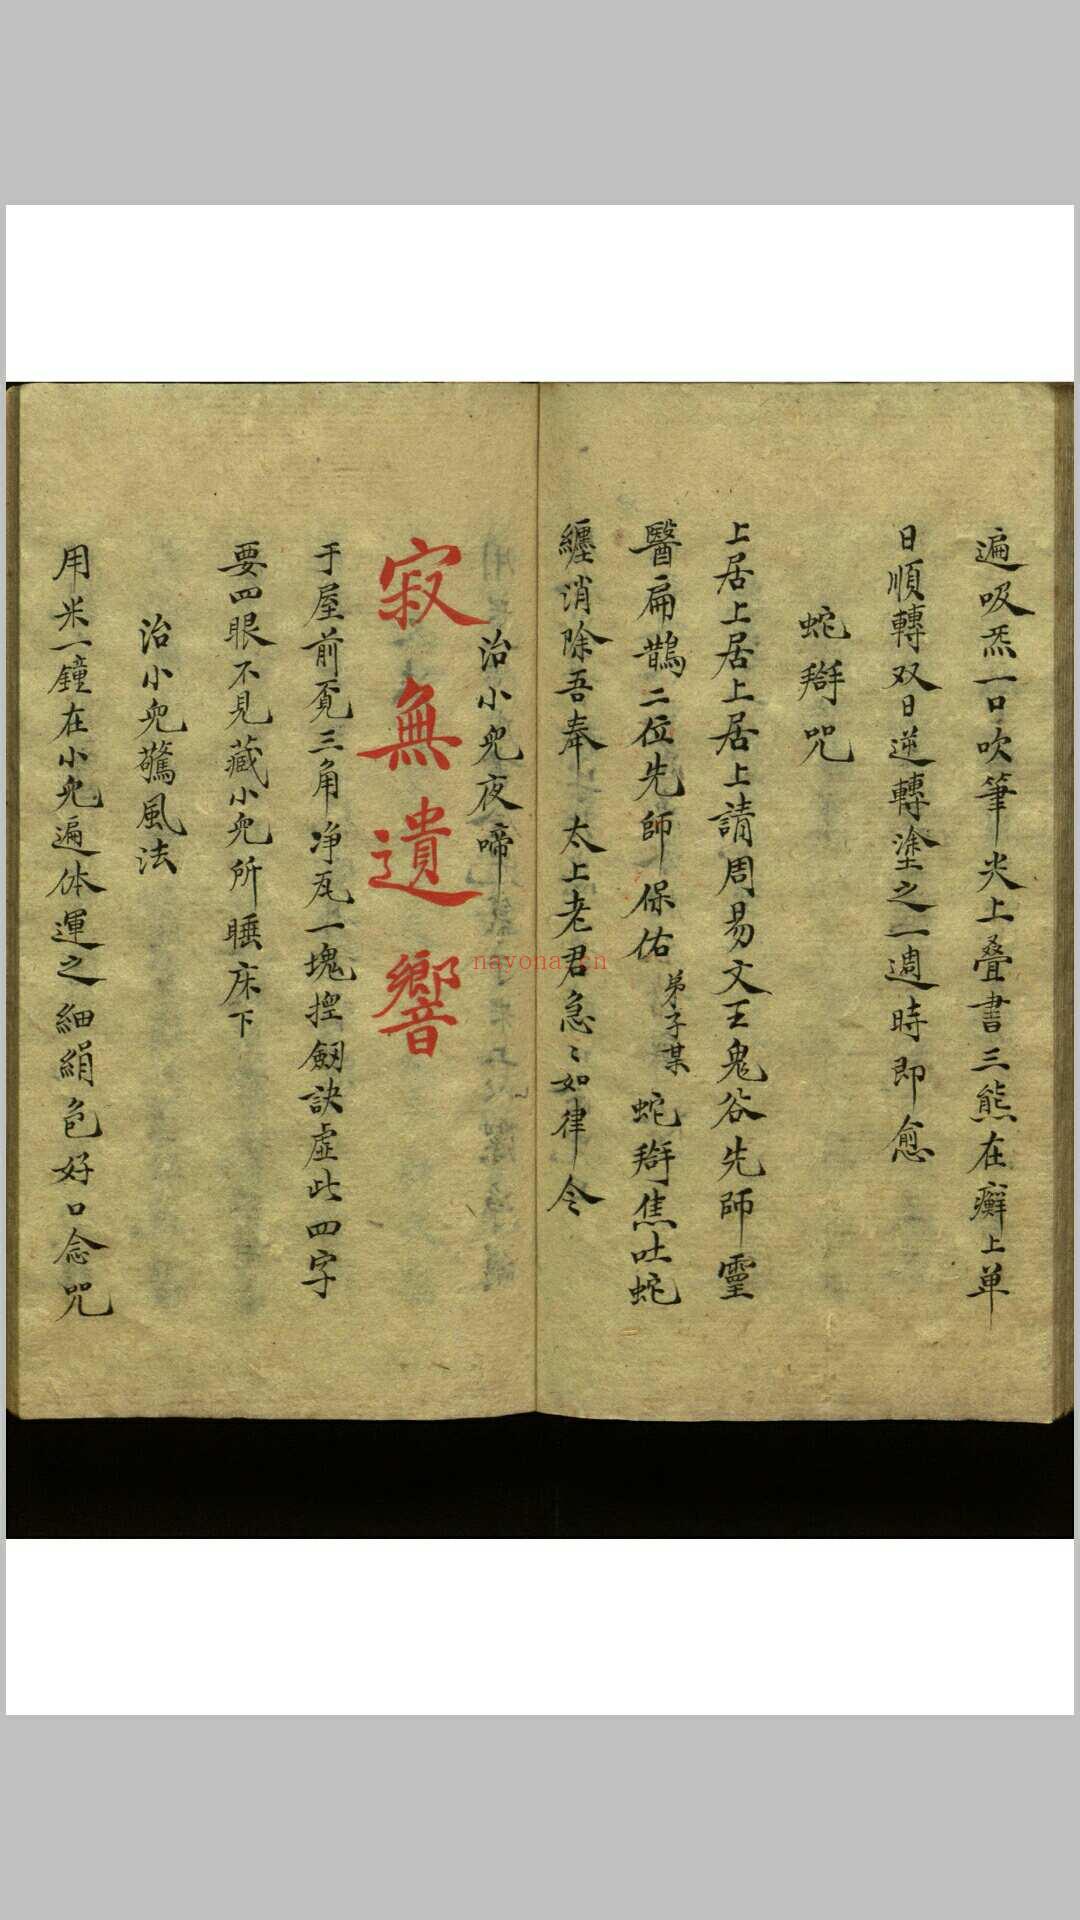 遍吸炁一口吹筆尖上叠書三熊在癬上单
日順轉双日逆轉塗之一週時即愈
蛇辮咒
上居上居上居上請周易文王鬼谷先師靈
醫扁鵲二位先師保佑弟子某蛇辮焦吐蛇
纏消除吾奉太上老君急〻如律令
治小兒夜啼
寂無遺響
于屋前覔三角净瓦一塊揑劔訣虛此四字
要四眼不見藏小兒所睡床下
治小兒驚風法
用米一鐘在小兒遍体運之細絹色好口念咒
nayona.cn